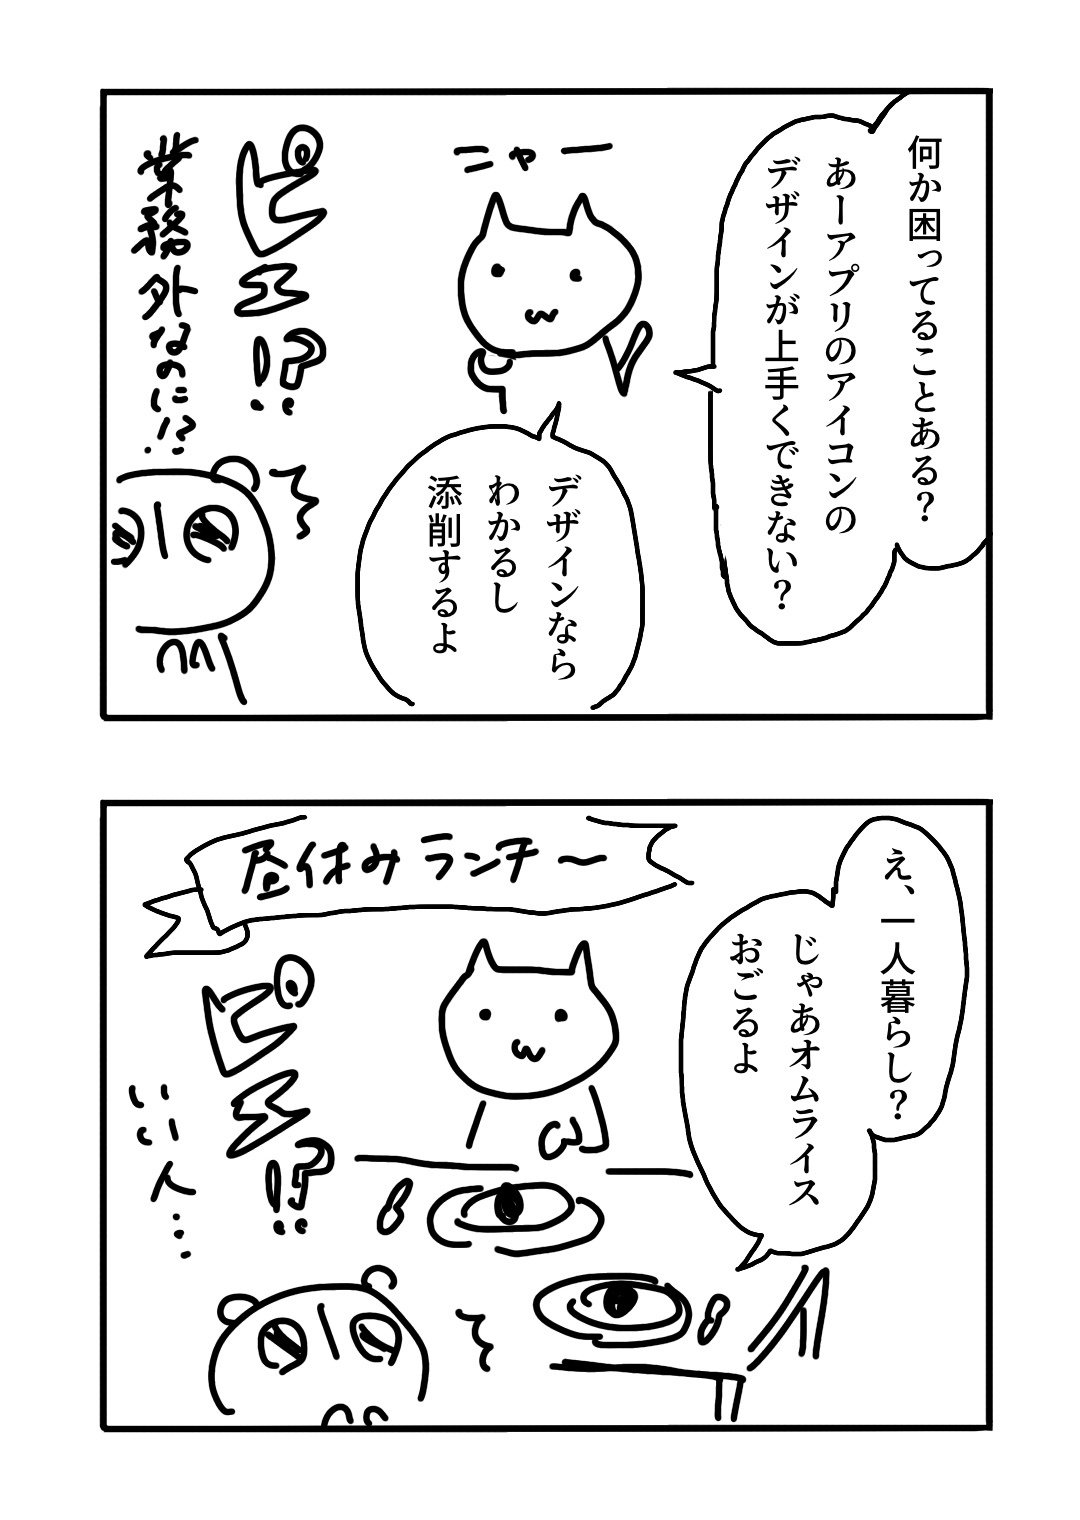 何か困ってることある?
あーアプリのアイコンの
デザインが上手くできない?
ニャー
デザインなら
わかるし
添削するよ
ピエ!?
業務外なのに!?
え、一人暮らし?
じゃあオムライス
おごるよ
昼休みランチ〜
ピエ!?
いい人…